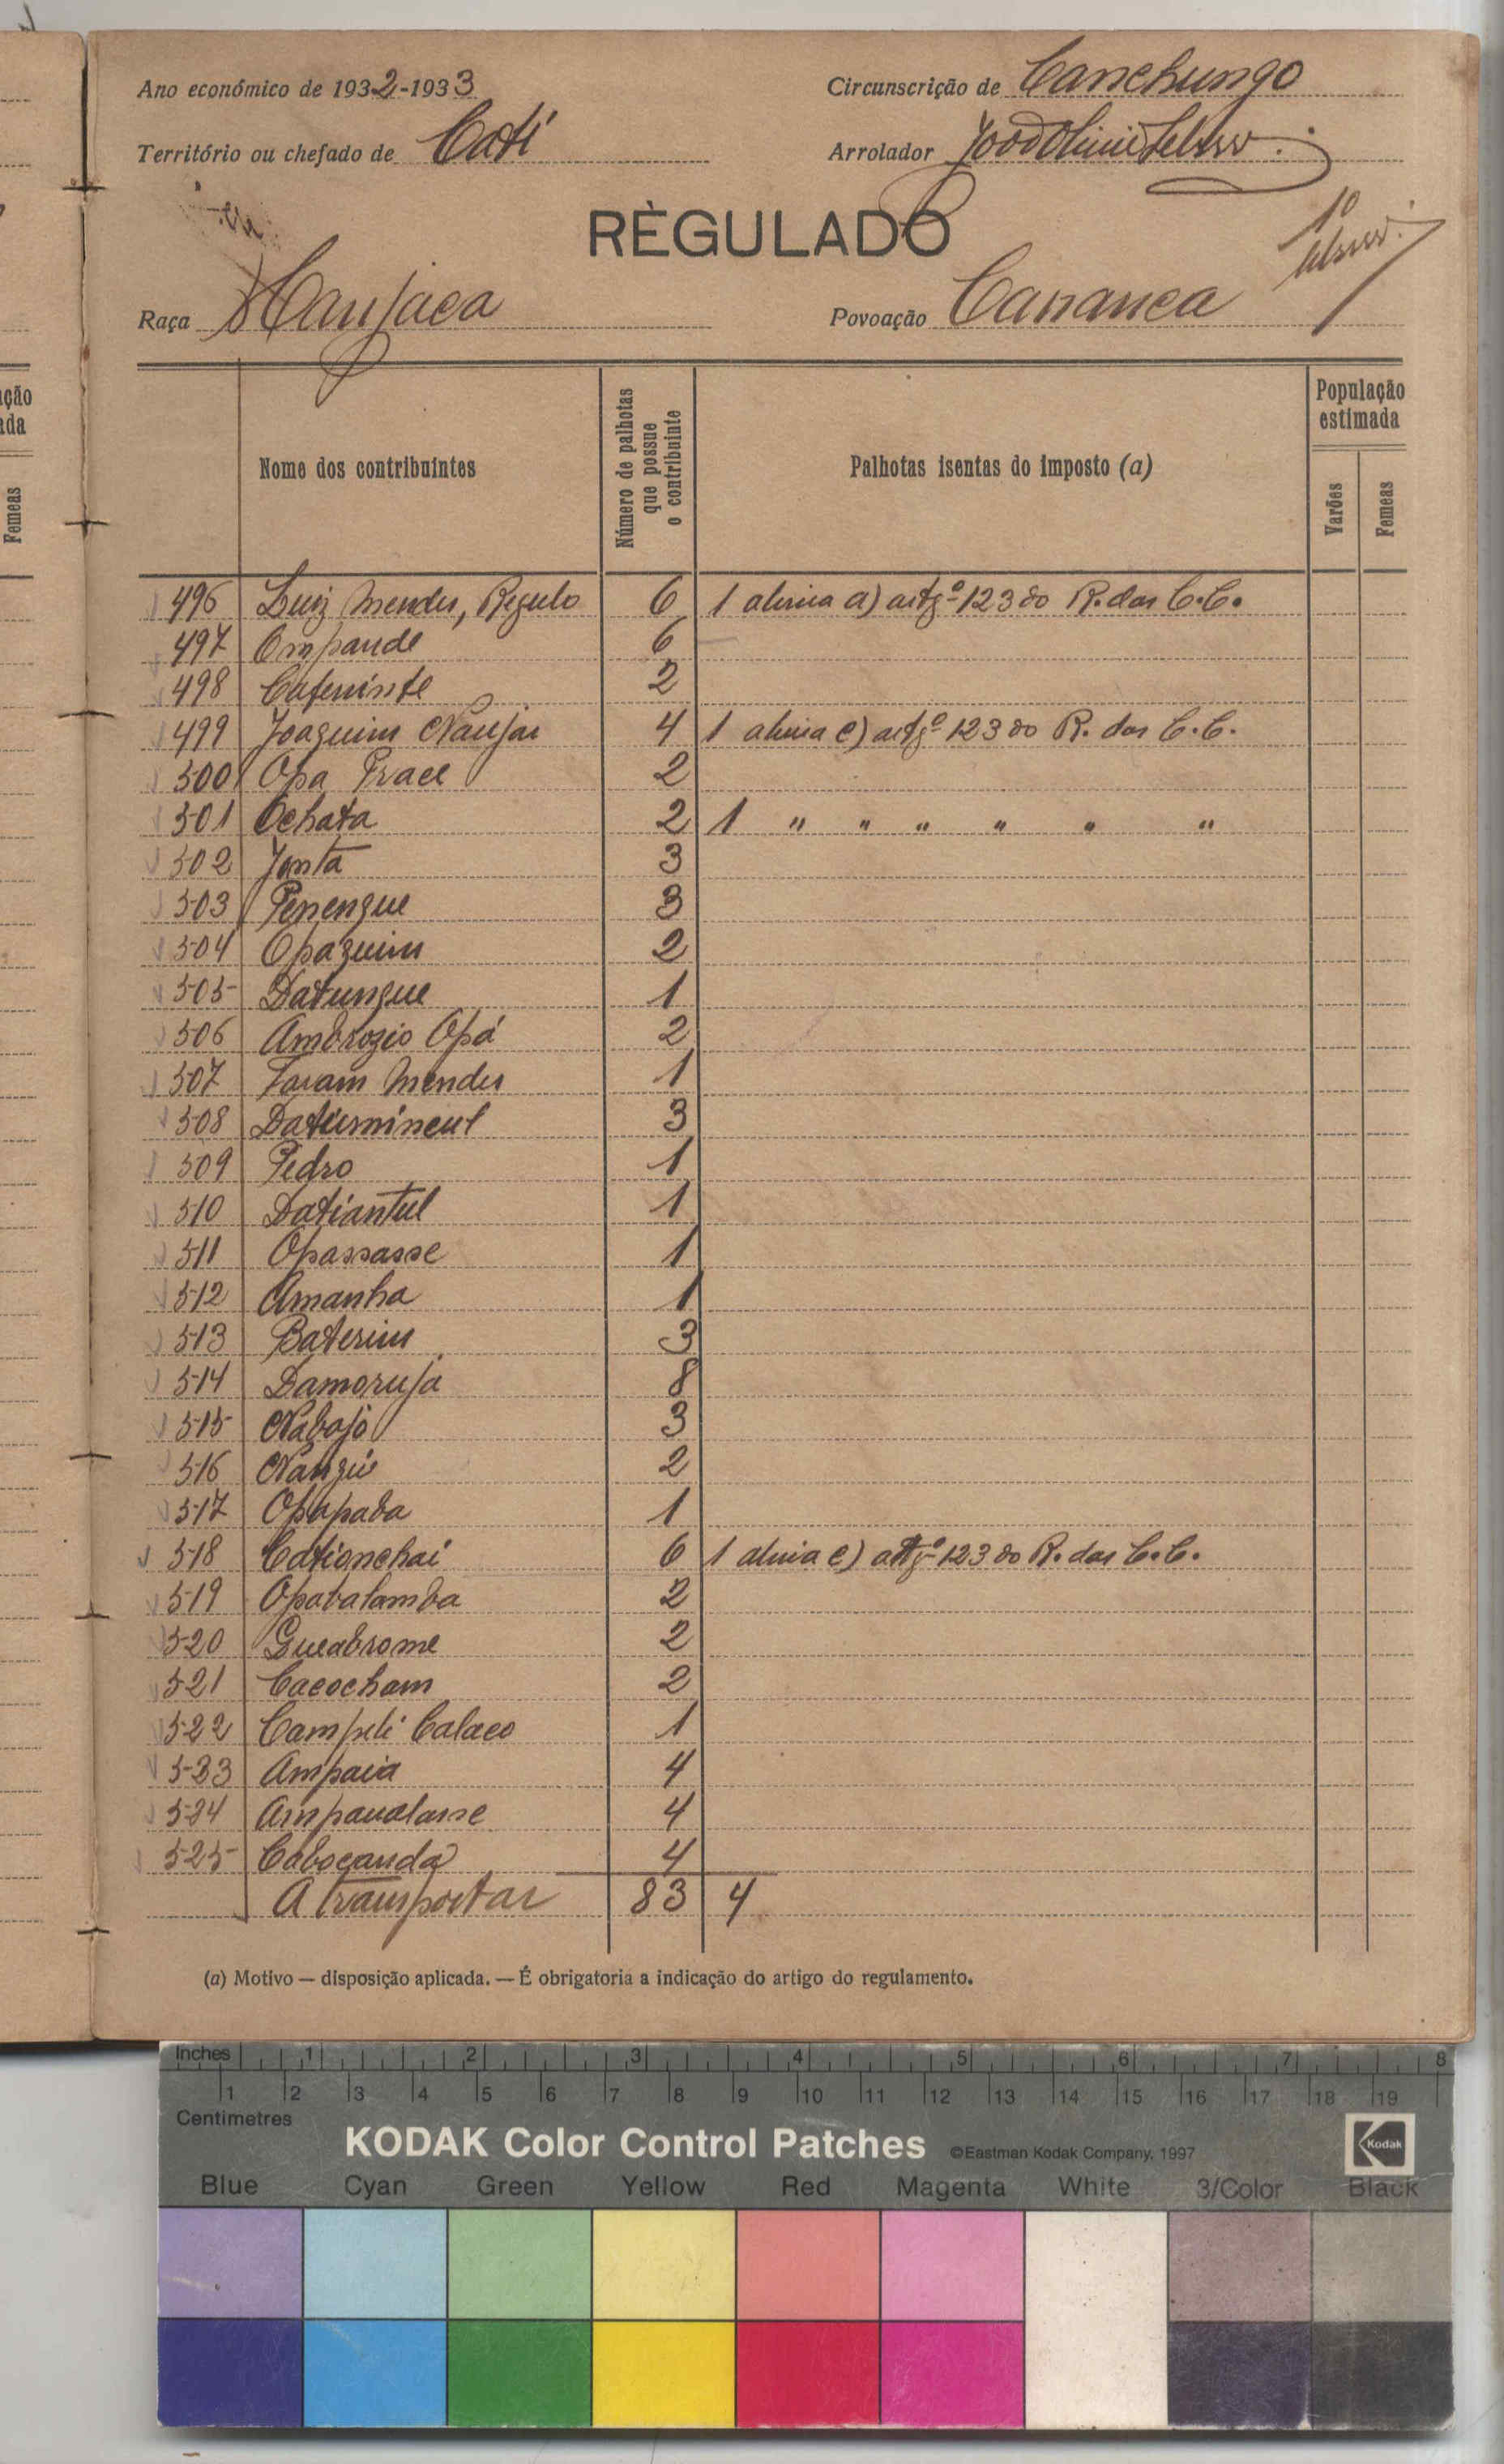 Ano económico de 1932-1933
Circunscrição de Canchungo
Território ou chefado de Cati
Arrolador
RÈGULADO
1º
Raça Manjaca
Povoação Cananca
ção
da
Femeas
Nome dos contribuintes
Número de palhotas
que possue
o contribuinte
Palhotas isentas do imposto (a)
População
estimada
Varões
Femeas
496 Luiz Mendes, Regulo 6 1 alinea a) artgº 123 do R. das C.C.
497 Ompande 6
498 Cafeninte 2
499 Joaquim Naujai 4 1 alinea e) artgº 123 do R. das C.C.
500 Opa Prace 2
501 Ochata 2 1 " " " " " "
502 Jontà 3
503 Penengue 3
504 Opaguim 2
505 Datungue 1
506 Ambrozio Opá 2
507 Faram Mendes 1
508 Datiemineul 3
509 Pedro 1
510 Datiantul 1
511 Opassasse 1
512 Amanha 1
513 Baterim 3
514 Damoruja 8
515 Nabajó 3
516 Nangue 2
517 Opapada 1
518 Cationchai 6 1 alinea e) artgº 123 do R. das C.C.
519 Opabalamba 2
520 Gueabrome 2
521 Cacocham 2
522 Campili Calaco 1
533 Ampaia 4
524 Ampaualasse 4
525 Cabocanda 4
A transportar 83 4
(a) Motivo — disposição aplicada. — É obrigatoria a indicação do artigo do regulamento.
Inches 1 2 3 4 5 6 7 8
1 2 3 4 5 6 7 8 9 10 11 12 13 14 15 16 17 18 19
Centimetres
KODAK Color Control Patches ©Eastman Kodak Company, 1997 Kodak
Blue Cyan Green Yellow Red Magenta White 3/Color Black